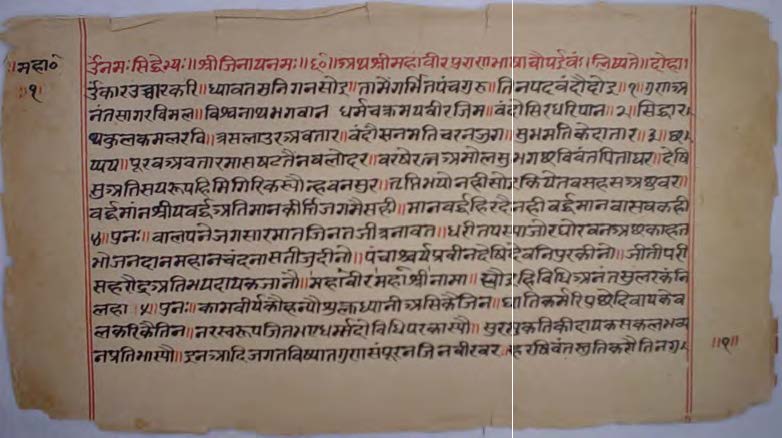 ॥महा०
॥१॥
उँनमः सिद्धेभ्यः॥श्रीजिनायनमः॥६०॥अथश्रीमहांवीरपुराणभाषाचौपईबंध।लिष्यते॥दोहा।
उँकारउच्चारकरि॥ध्यावतमुनिगनसोइ॥तामेंगर्भितपंचगुरु॥तिनपदवंदौदोइ॥१॥गुणअ
नंतसागरविमल॥विश्वनाथभगवान धर्मचक्रमयवीरजिम॥वंदौसिरधरिपान॥२॥सिद्धार
थकुलकमलरवि॥त्रसलाउरअवतार॥वंदौसनमतिचरनजुग॥सुभमतिकेदातार॥३॥छ
प्पय॥पूरवअवतारमासषटतैंनवलोइर॥वरषेरत्नअमोलसुभगछविवंतपिताघर॥देषि
सुअतिसयरूपदिमिगिरिकस्यौन्हवनसुर॥तप्तिभयोनहीसोइकियेतवसहसअछवर॥
वर्द्धमांनश्रीयवर्द्धअतिमानकीर्त्तिजगमैसही॥मानवर्द्धहिरदैनहीवर्द्धमानवासवकही
४॥पुनः॥वालपनेंजगसारमातजिनतजीअनावत॥धरीतपस्या
भोजनदानमहानचंदनासतीजुदीनो॥पंचाश्चर्यप्रवीनदेषिदेवनिपुरकीनो॥जीतीपरी
सहरौद्रअतिभयदायकजानौ॥महावीरमहाश्रीनामा॥
लहा॥५॥पुनः॥कामवीर्यकौहन्यौशुक्लध्यानीअसिकैजिन॥घातिकर्म
लकरिकैतिन॥नरस्वरूपजितभाएधर्मादोविधिपरकास्यौ॥सुरमुकतिकीदायकसकलभव्य
नप्रतिभास्यौ॥इनआदिजगतविष्यातगुणसंपूरनजिनवीरवर॥
॥१॥